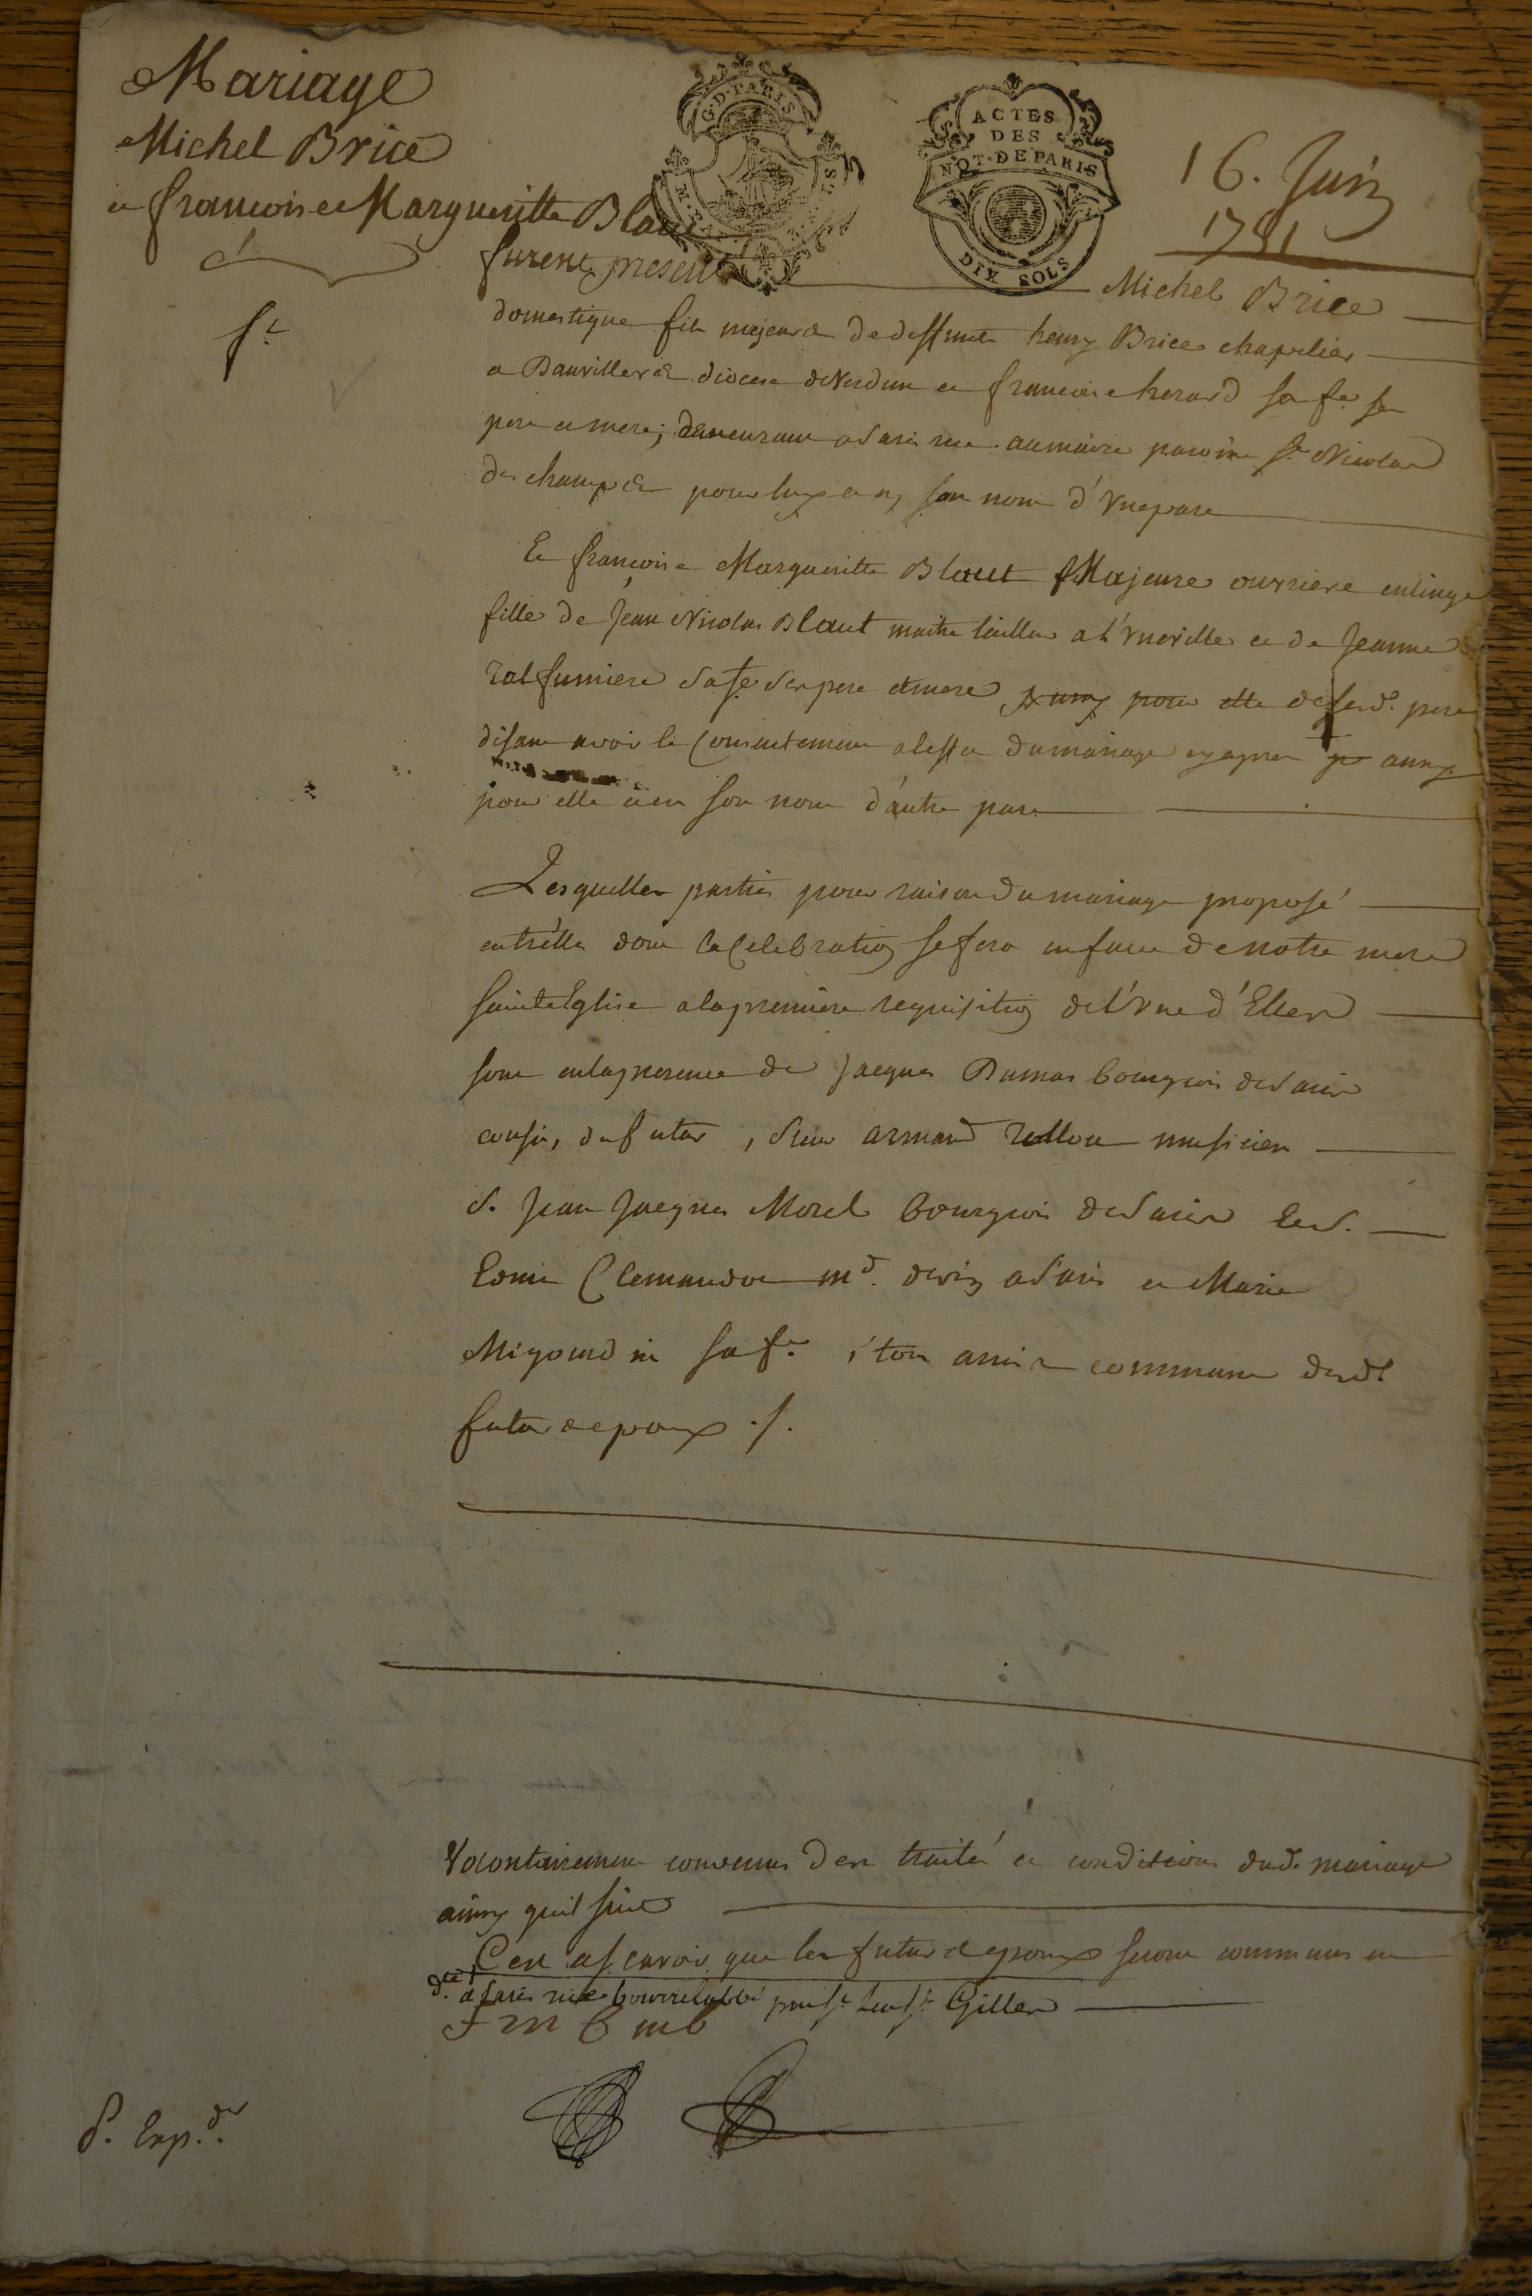 Mariage
Michel Brice
et francoise Margueritte Blaut
G·D·PARIS
ACTES
DES
NOT·DE PARIS
DIX SOLS
16. Juin
1751
furent presens Michel Brice
domestique fils majeur de deffunts henry Brice chapelier
a Danvillers diocese de Verdun et francoise herard sa fe. ses
pere et mere; demeurant a Paris rue aumaire paroisse St. Nicolas
des champs pour luy et en son nom d'Vne part
Et francoise Margueritte Blaut Majeure ouvriere en linge
fille de Jean Nicolas Blaut maitre tailleur a L'Vneville et de Jeanne
sa fe. ses pere et mere pour elle de sesd. pere
disant avoir le Consentement a l'effet du mariage cy apres
pour elle et en son nom d'autre part
Lesquelles parties pour raison du mariage proposé
entr'elles dont la Celebration se fera en face de notre mere
Sainte Eglise a la premiere requisition de l'Vne d'Elles
sont en la presence de Jacques Dumas bourgeois de Paris
cousin du futur, Sieur armand musicien
S. Jean Jacques Morel bourgeois de Paris le S.
Edme md. de vin a Paris et Marie
sa fe. tous amis communs desd.
futurs epoux ./.
Volontairement convenus des traité et conditions dud. mariage
ainsy qu'il suit
C'est asscavoir que les futurs epoux seront communs en
a Paris rue bourlabbé psse. St. Leu St. Gilles
F m B m b
P. Exp.